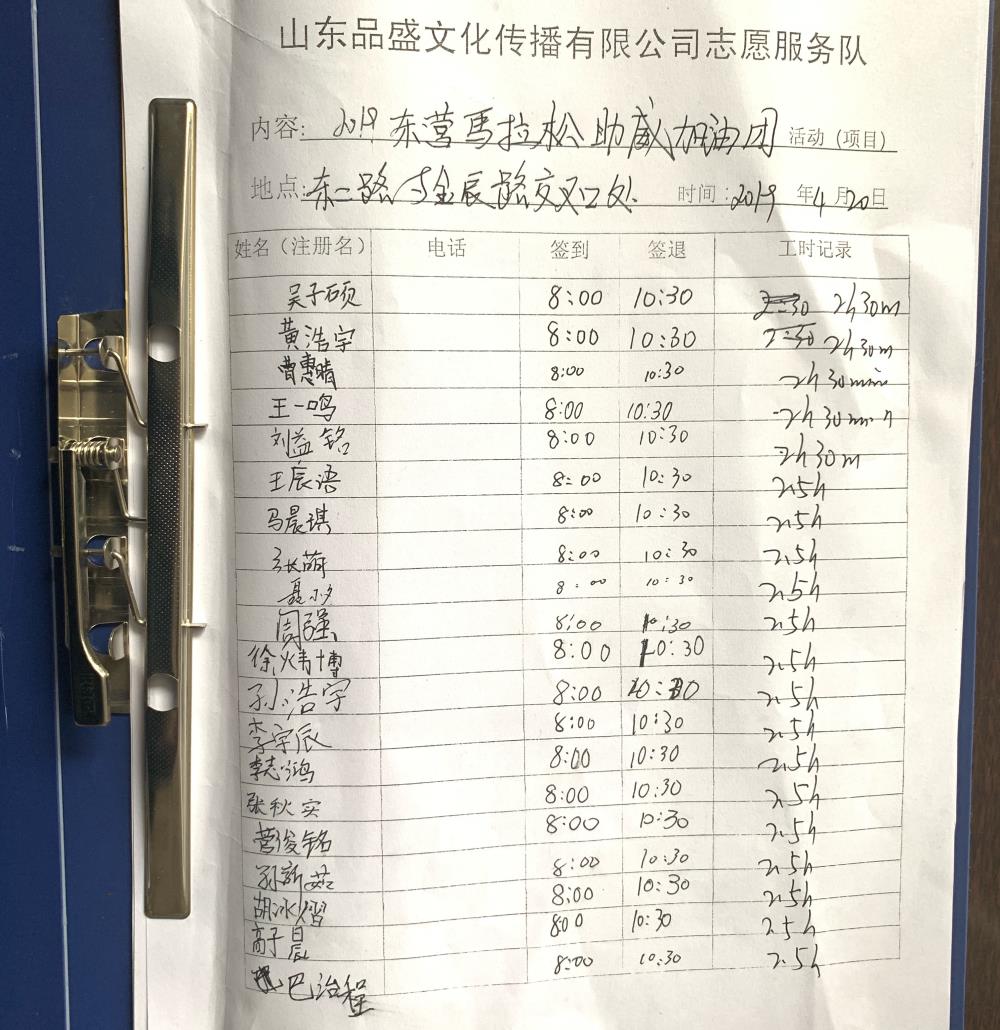 山东品盛文化传播有限公司志愿服务队
内容: 2019 东营马拉松助威加油团 活动 (项目)
地点: 东二路与金辰路交叉口处. 时间: 2019 年 4 月 20 日
姓名(注册名) 电话 签到 签退 工时记录
吴子硕 8:00 10:30 2:30 2h30m
黄浩宇 8:00 10:30 2:30 2h30m
曹惠晴 8:00 10:30 2h30min
王一鸣 8:00 10:30 2h30min
刘益铭 8:00 10:30 2h30m
王辰语 8:00 10:30 2.5h
马晨琪 8:00 10:30 2.5h
张萌 8:00 10:30 2.5h
聂 8:00 10:30 2.5h
周强 8:00 10:30 2.5h
徐炜博 8:00 10:30 2.5h
孙浩宇 8:00 10:30 2.5h
李宇辰 8:00 10:30 2.5h
李志鸿 8:00 10:30 2.5h
张秋实 8:00 10:30 2.5h
营俊铭 8:00 10:30 2.5h
孙新茹 8:00 10:30 2.5h
胡冰熠 8:00 10:30 2.5h
高子晨 800 10:30 2.5h
巴治程 8:00 10:30 2.5h